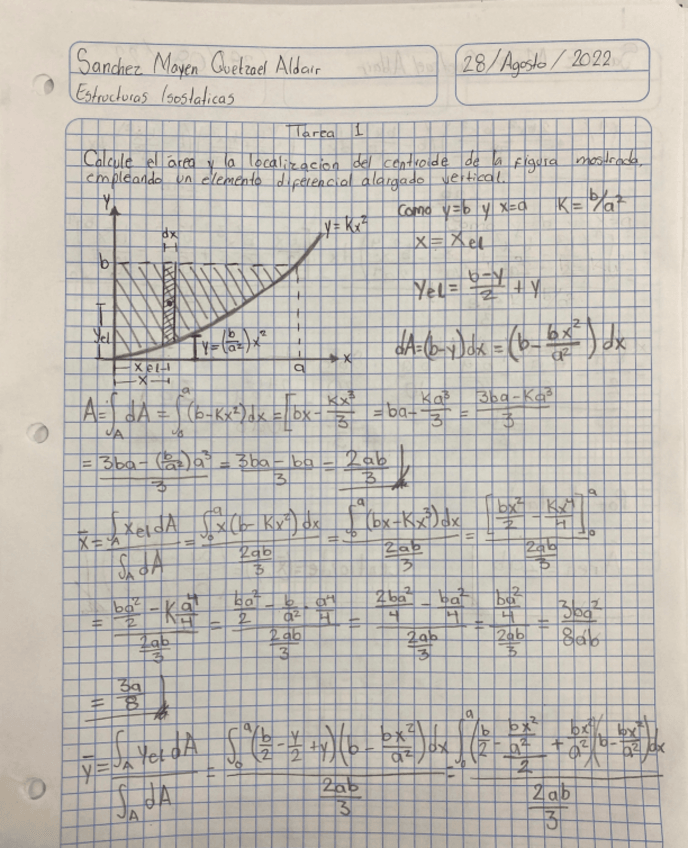 Sanchez Mayen Quetzael Aldair
28/Agosto/2022
Estructuras Isostaticas
Tarea 1
Calcule el area y la localizacion del centroide de la figura mostrada,
empleando un elemento diferencial alargado vertical.
y
dx
y=Kx²
b
yel
y=(b/a²)x²
x
a
xel
x
Como y=b y x=a K=b/a²
x=xel
yel=(b-y)/2+y
dA=(b-y)dx=(b-bx²/a²)dx
A=∫_A dA=∫_0^a(b-Kx²)dx=[bx-Kx³/3=ba-Ka³/3=(3ba-Ka³)/3
=(3ba-(b/a²)a³)/3=(3ba-ba)/3=2ab/3
x̄=∫_A xel dA/∫_A dA=∫_0^a x(b-Kx²)dx/(2ab/3)=∫_0^a(bx-Kx³)dx/(2ab/3)=[bx²/2-Kx⁴/4]_0^a/(2ab/3)
=(ba²/2-K a⁴/4)/(2ab/3)=(ba²/2-b/a²·a⁴/4)/(2ab/3)=(2ba²/4-ba²/4)/(2ab/3)=(ba²/4)/(2ab/3)=3ba²/8ab
=3a/8
ȳ=∫_A yel dA/∫_A dA=∫_0^a(b/2-y/2+y)(b-bx²/a²)dx/(2ab/3)=∫_0^a(b/2-(bx²/a²)/2+bx²/a²)(b-bx²/a²)dx/(2ab/3)